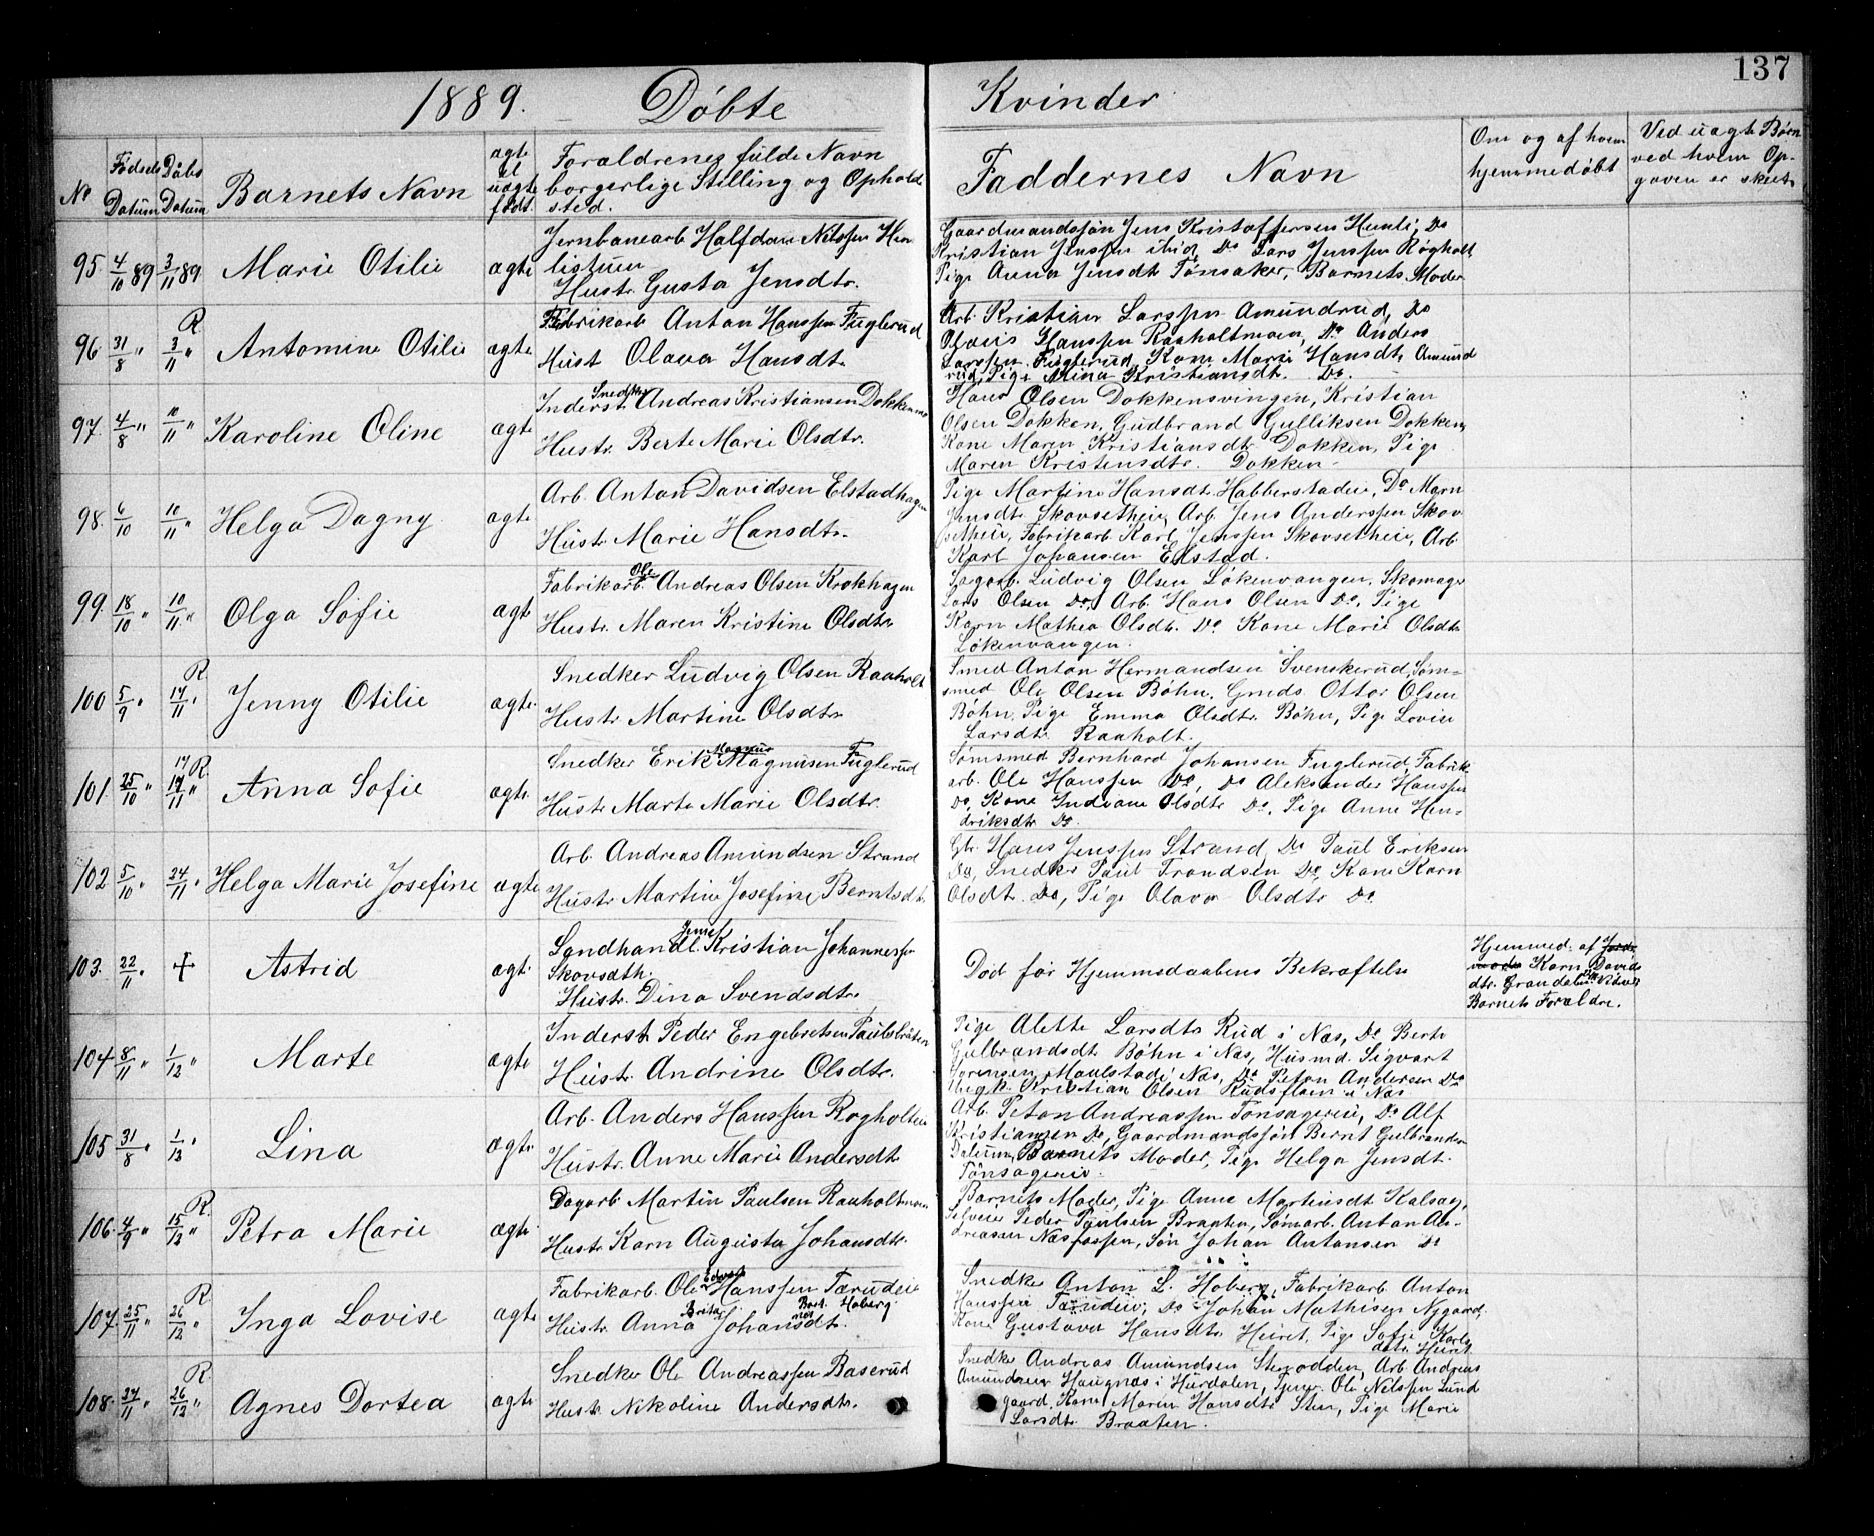 137
1889. Döbte Kvinder
No
Fødsels Datum
Dåbs Datum
Barnets Navn
ægte el uægte født.
Forældrenes fulde Navn
borgerlige Stilling og Ophold
sted.
Faddernes Navn
Om og af hvem
hjemmedöbt
Ved uægte Børn
ved hvem Op-
gaven er skeet
95 4/10 89 3/11 89 Marie Otilie ægte
Jernbanearb Halfdan Nilssen
Hustr. Gusta Jensdtr.
Gaardmandssøn Jens Kristoffersen Hunli, Do
Kristian Jenssen ibid, Do Lars Jenssen Røgholt
Pige Anna Jensdt Tønsaker, Barnets Moder
96 31/8 " R. 3/11 " Antomine Otilie ægte
Fabrikarb Anton Hanssen Fuglerud
Hust Olava Hansdt.
Arb. Kristian Larssen Amundrud, Do
Olaus Hanssen Raaholtmoen, Do Anders
Larssen Fuglerud, Kone Marie Hansdt. Amund
rud, Pige Mina Kristiansdt. Do.
97 4/8 " 10/11 " Karoline Oline ægte
Inderst Snedker Andreas Kristiansen Dokken
Hustr. Berte Marie Olsdtr.
Hans Olsen Dokkensvingen, Kristian
Olsen Dokken, Gudbrand Gulliksen Dokken,
Kone Maren Kristiansdtr Dokken, Pige
Maren Kristensdtr. Dokken.
98. 6/10 10/11 " Helga Dagny ægte
Arb. Anton Davidsen Elstadhagen
Hustr Marie Hansdtr.
Pige Martine Hansdt. Habberstadeie, Do Marn
Jensdt. Skovsetheie, Arb. Jens Anderssen Skov
setheie, Fabrikarb Karl Jenssen Skovsetheie, Arb.
Karl Johansen Elstad.
99. 18/10 " 10/11 " Olga Sofie ægt
Fabrikarb. Ole Andreas Olsen Krokhagen
Hustr. Maren Kristine Olsdtr
Sagarb. Ludvig Olsen Lökenvangen, Skomager
Lars Olsen Do, Arb. Hans Olsen Do, Pige
Karn Mathea Olsdt. Do Kone Marie Olsdt
Lökenvangen.
100 5/9 " R. 17/11 " Jenny Otilie ægte
Snedker Ludvig Olsen Raaholt
Hustr Martine Olsdtr
Smed Anton Hermandsen Svenskerud, Söm-
smed Ole Olsen Böhn, Gmds Ottar Olsen
Böhn, Pige Emma Olsdtr. Böhn, Pige Lovise
Larsdt. Raaholt.
101. 25/10 " R. 17/11 " Anna Sofie ægte
Snedker Erik Magnusen Fuglerud
Hustr Marte Marie Olsdtr.
Sömsmed Bernhard Johansen Fuglerud Fabrik
arb. Ole Hanssen Do, Do Aleksander Hanssen
Do, Kone Indiane Olsdtr Do, Pige Anne Hen-
driksdtr Do.
102 5/10 " 24/11 " Helga Marie Josefine ægte
Arb. Andreas Amundsen Strand
Hustr Martine Josefine Berntsdt.
Gbr. Hans Jenssen Strand, Do Paul Eriksen
Do, Snedker Paul Frandsen Do, Kone Karn
Olsdt. Do, Pige Olava Olsdtr Do
103. 22/11 " + Astrid ægt.
Landhandl. Kristian Johannessen
Skovsdth.
Hustr. Dina Svendsdtr.
Død før Hjemmedaabens Bekræftelse
Hjemmed. af
Karn Davids
dtr.
Barnets Forældre.
104 8/11 " 1/12 " Marte ægte
Inderst Peder Engebretsen Paulsbråten
Hustr. Andrine Olsdtr.
Pige Alette Larsdtr Rud i Næs, Do Berte
Gulbrandsdt Böhn i Næs, Husmd. Sigvart
Sørensen Maulstad i Næs, Do Peton Andersen Do
Kristian Olsen Rudsfloen i Næs
105 31/8 " 1/12 " Lina ægte
Arb. Anders Hanssen Rogholteie
Hustr. Anne Marie Andersdt.
Arb. Peton Andreassen Tønsagereie, Do Alf
Kristiansen Do, Gaardmandssøn Bernt Gulbrandsen
Barnets Moder, Pige Helga Jensdt.
Tönsagereie.
106. 4/9 " R. 15/12 " Petra Marie ægte
Dagarb Martin Paulsen Raaholtmoen
Hustr. Karn Augusta Johansdtr.
Barnets Moder, Pige Anne Martinsdt Kalsag,
Selveier Peder Paulsen Braaten, Sömarb. Anton An-
dreasen Næsfossen, Søn Johan Antonsen Do
107. 25/11 " R. 26/12 " Inga Lovise ægte
Fabrikarb. Ole Edvard Hanssen Tærudeie
Hustr. Anna Johansdt. Hoberg.
Snedker Anton L. Hoberg, Fabrikarb Anton
Hanssen Tærudeie, Do Johan Mathisen Nygaard,
Kone Gustava Hansdtr Heiret, Pige Sofie Karls
datr Heiret
108. 27/11 " R. 26/12 " Agnes Dortea ægte
Snedker Ole Andreassen Baserud
Hustr. Nikoline Andersdtr.
Snedker Andreas Amundsen Stenodden, Arb. Andreas
Amundsen Haugnæs i Hurdalen, Ole Nelssen Lund
gaard, Kone Maren Hansdtr Sten, Pige Marie
Larsdt Braaten.